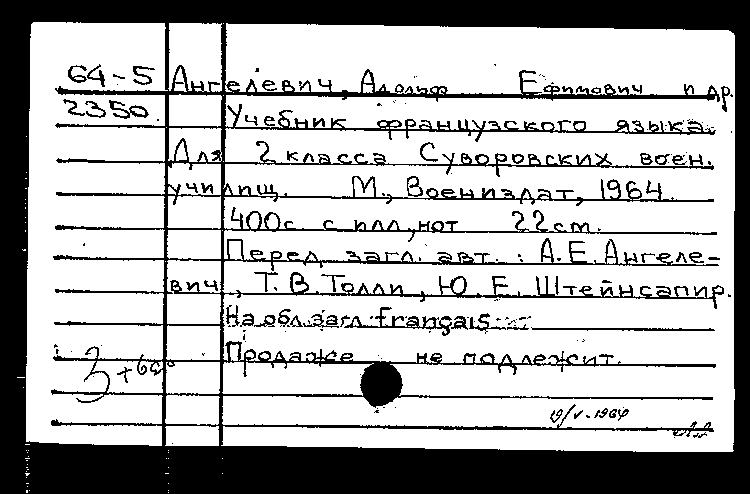 64-5 Ангелевич, Адольф Ефимович и др.
2350. Учебник французского языка.
Для 2 класса Суворовских воен.
училищ. М., Воениздат, 1964.
400с. с илл., нот 22см.
Перед загл. авт.: А.Е.Ангеле-
вич, Т.В.Толли, Ю.Е.Штейнсапир.
На обл.загл. français
Продаже не подлежит.
3
19/V-1964